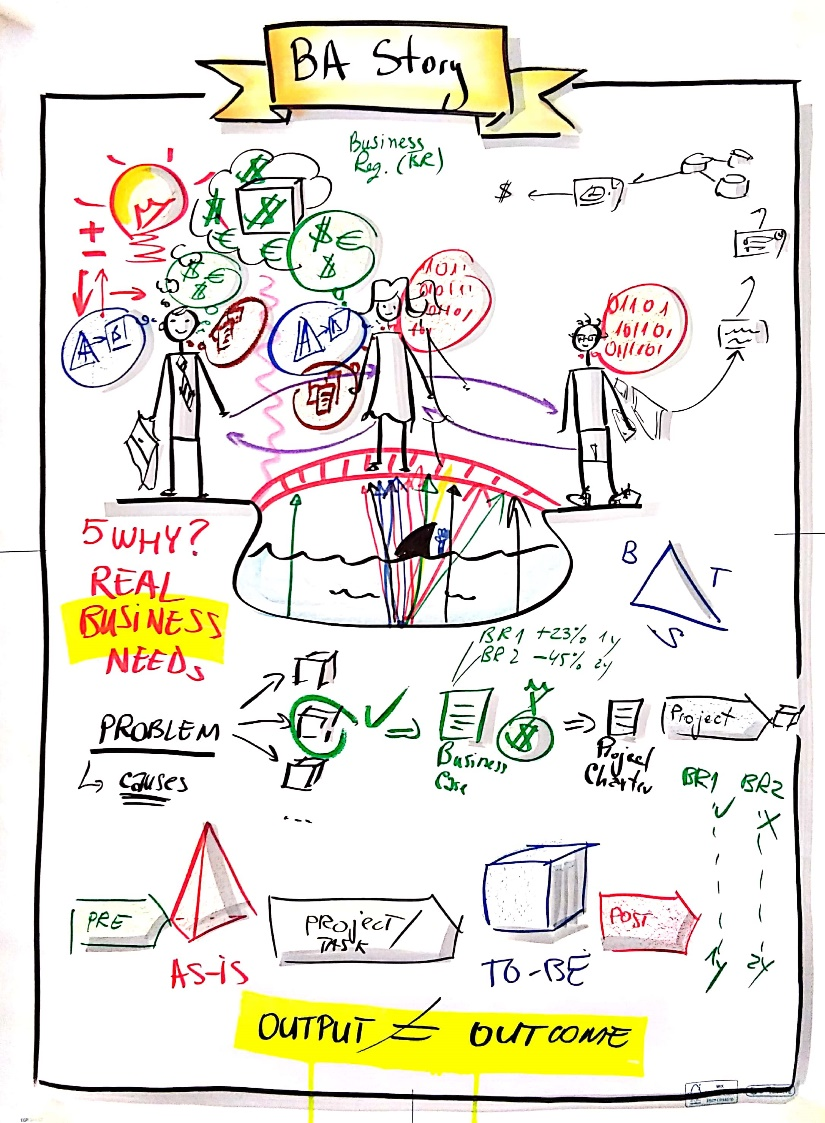 BA Story
Business
Req. (BR)
$
$
$
$
€
€
$ €
$
$ €
$
+
-
A → B
A → B
1011
01011
01101
101101
011101
5 WHY?
REAL
BUSINESS
NEEDS
B
T
S
BR1 +23% 1y
BR2 -45% 2y
PROBLEM
causes
...
$
Business
Case
Project
Charter
Project
BR1
BR2
1y
2y
PRE
AS-IS
PROJECT/
TASK
TO-BE
POST
OUTPUT ≠ OUTCOME